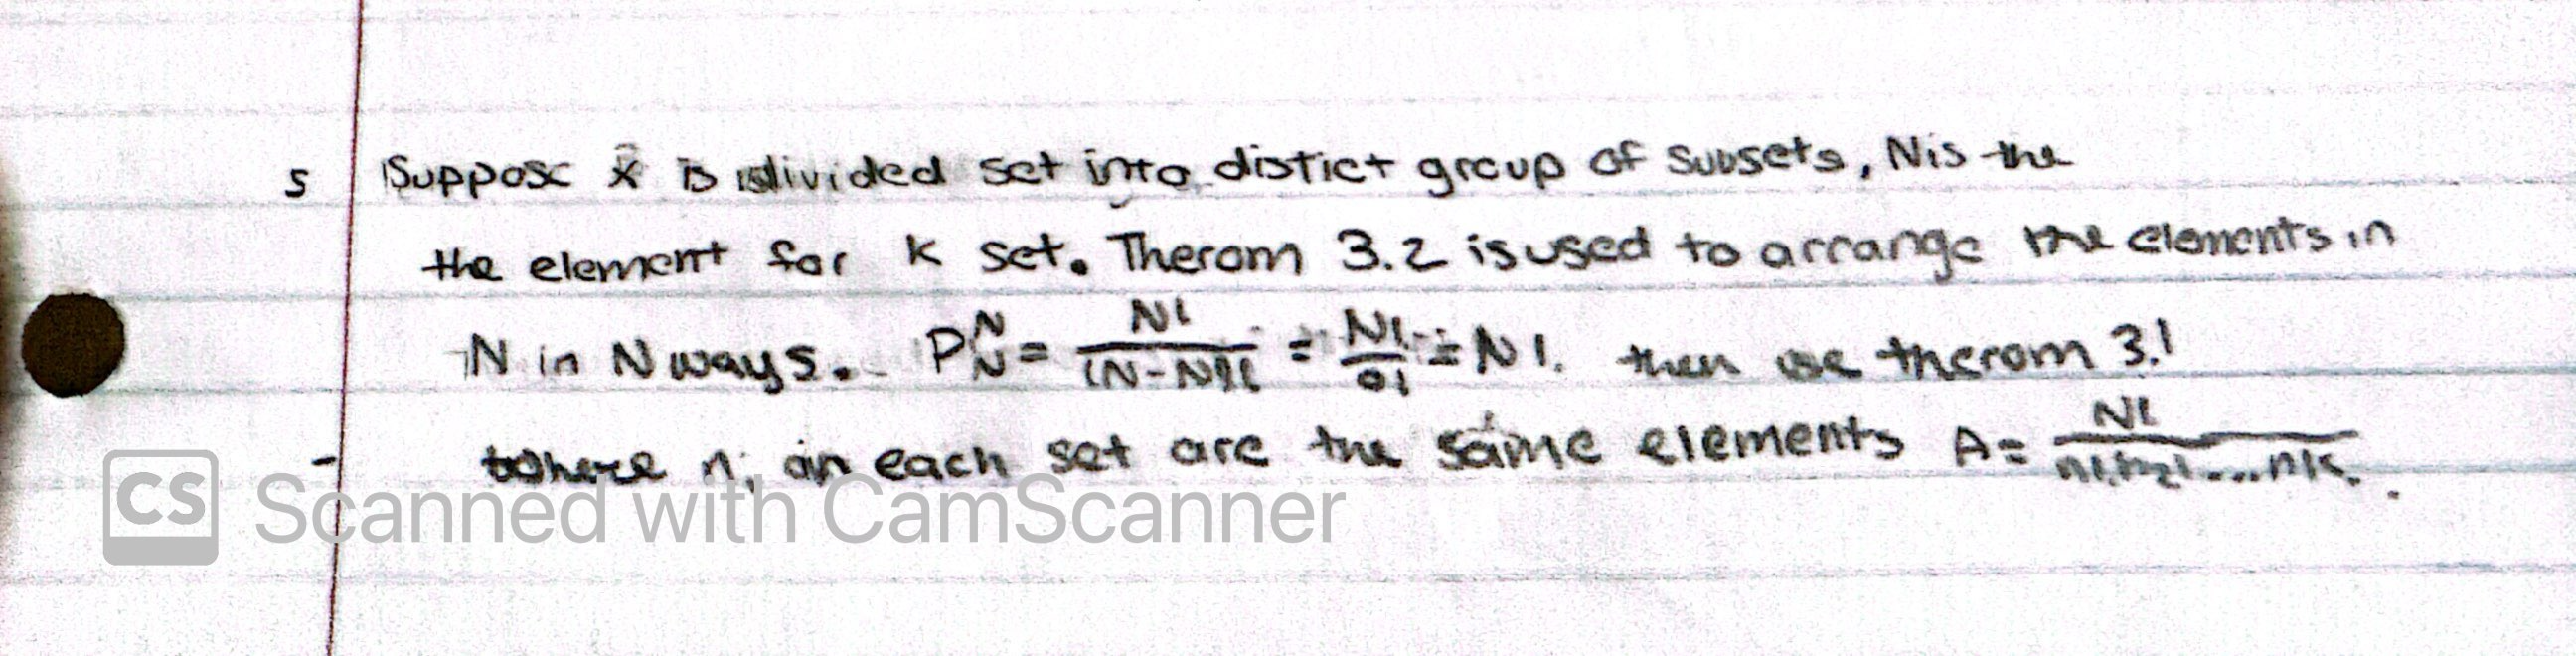 5 Suppose x̄ is divided set into distict group of subsets, N is the
the element for k set. Therom 3.2 is used to arrange the elements in
N in N ways. P^N_N = N!/(N-N)! = N!/0! = N!. then use therom 3.1
- where n; in each set are the same elements A = N!/n1!n2!...nk.
CS Scanned with CamScanner